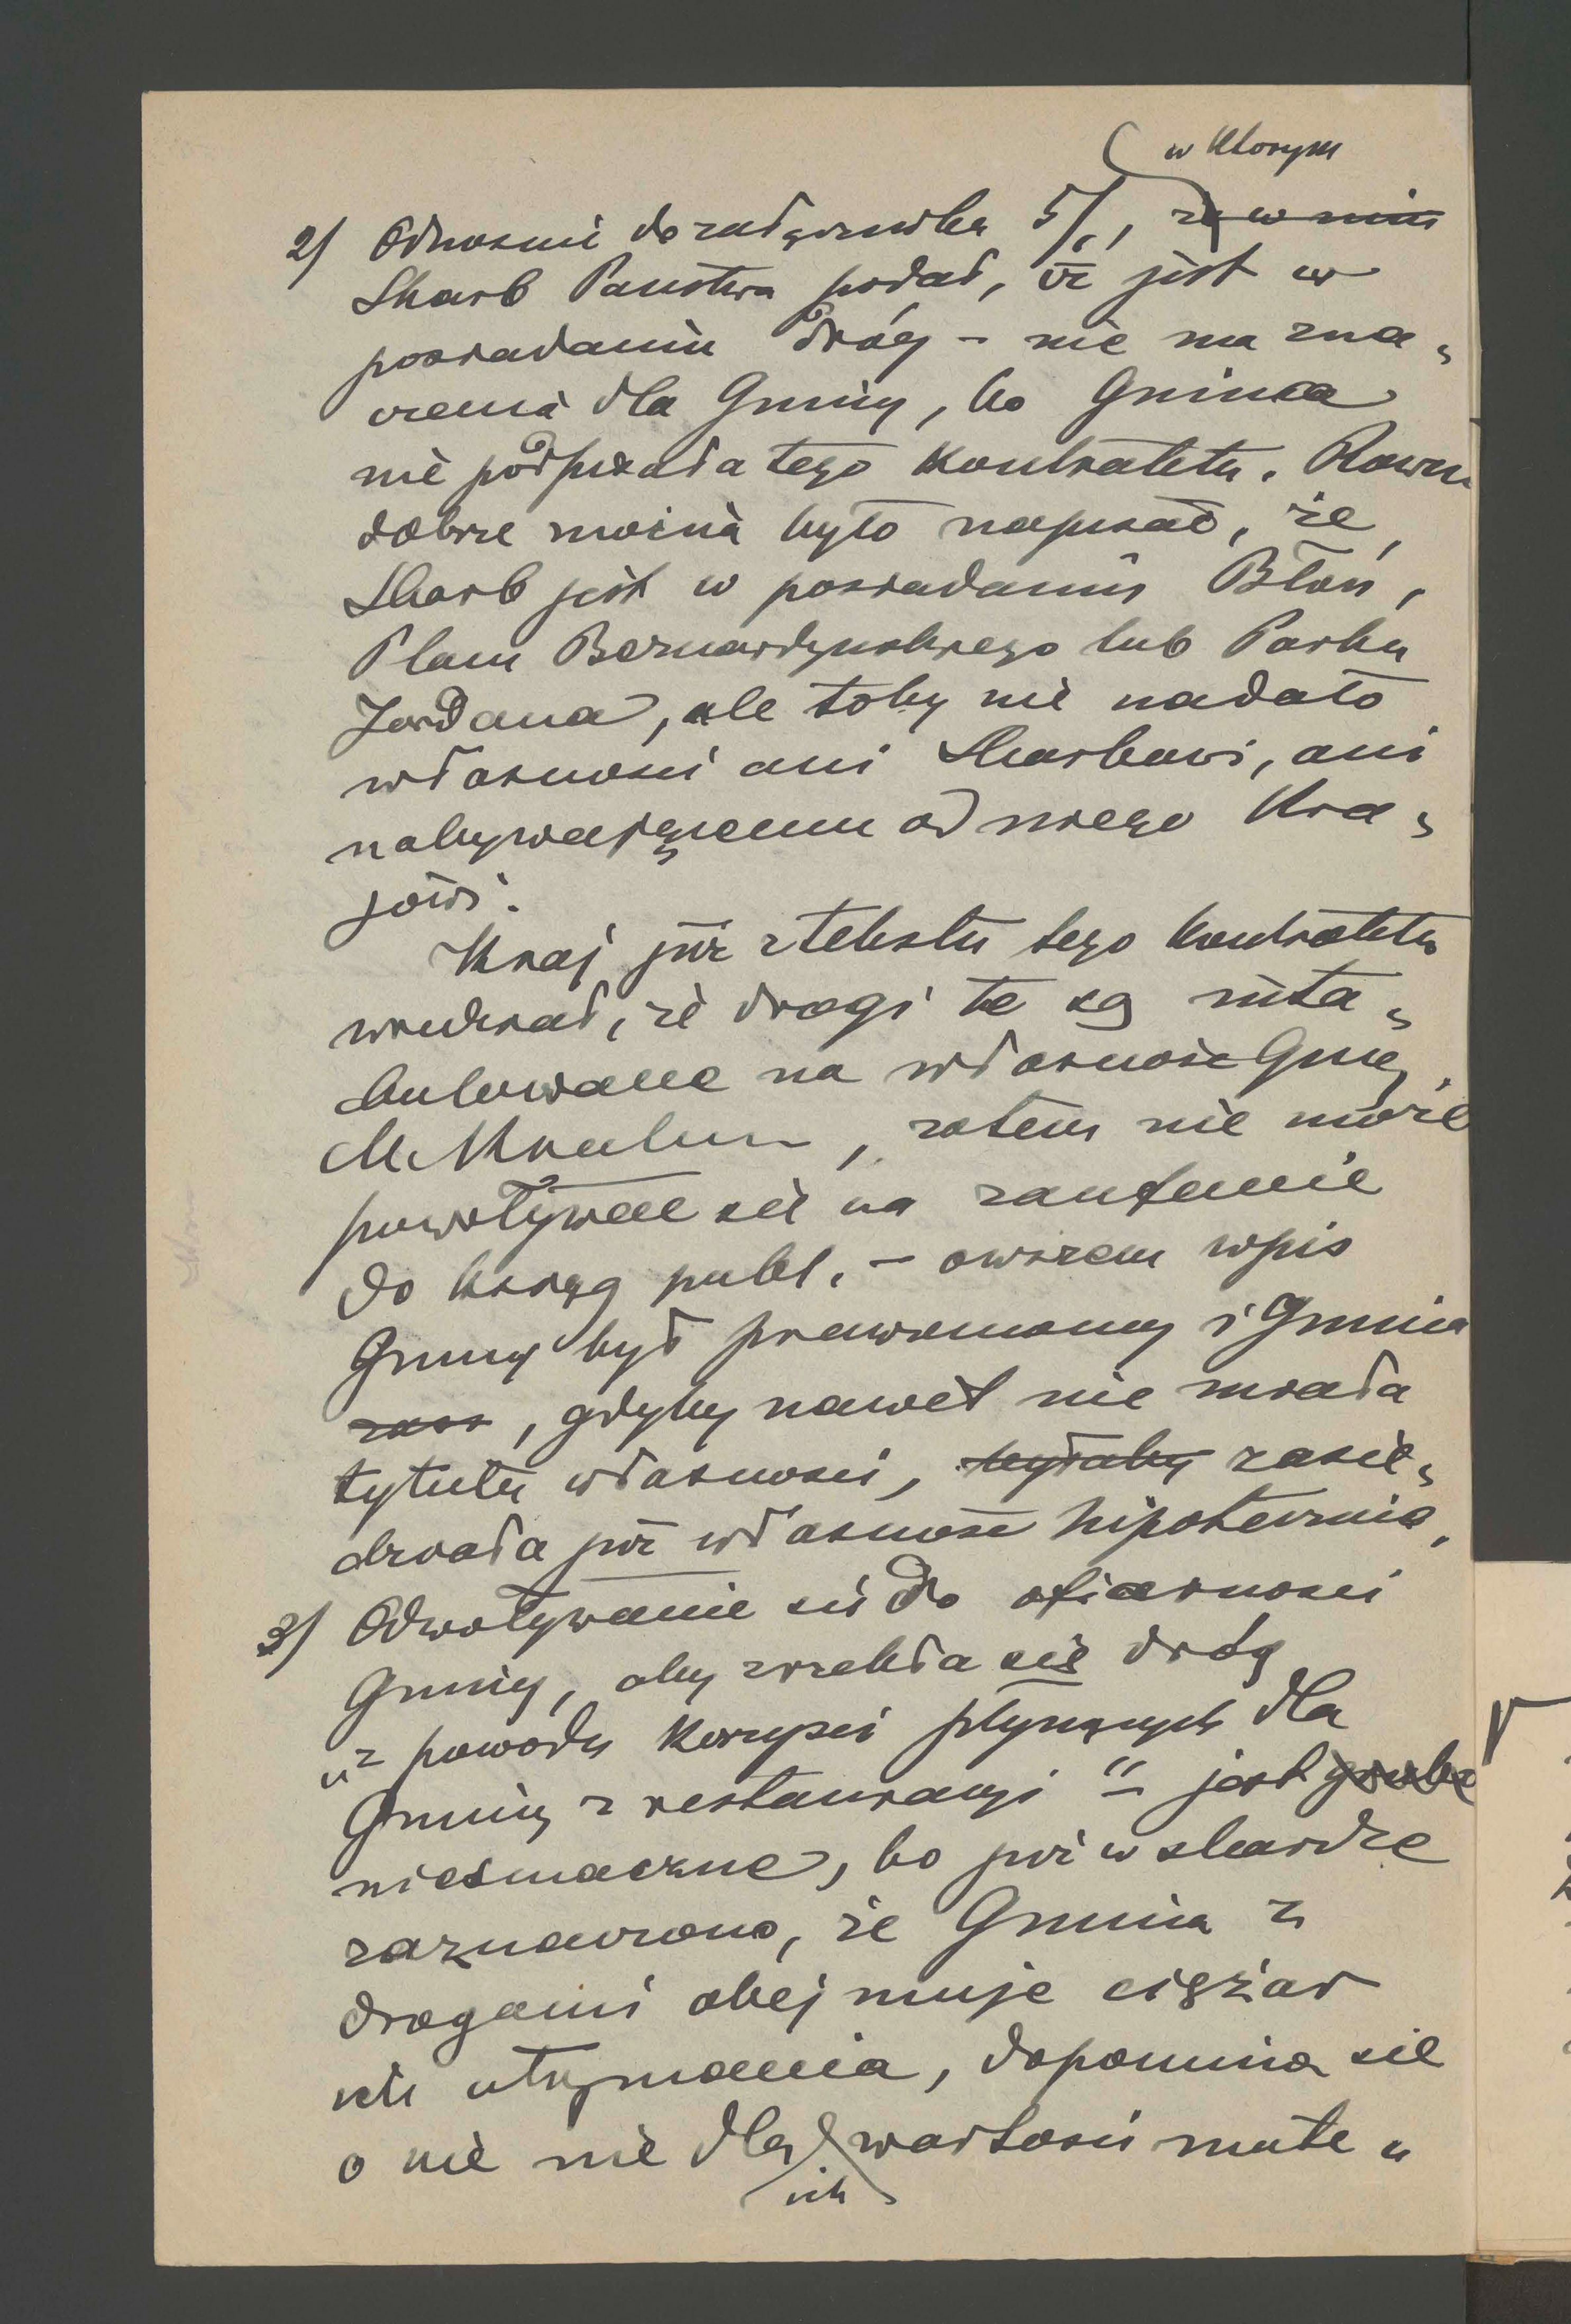 w którym
2/ Odnośnie do załącznika 5/, że w nim
Skarb Państwa podał, że jest w
posiadaniu dróg - nie ma zna„
czenia dla Gminy, bo Gmina
nie podpisała tego kontraktu. Równie
dobrze można było napisać, że
Skarb jest w posiadaniu Błoń,
Placu Bernardyńskiego lub Parku
Jordana, ale toby nie nadało
własności ani Skarbowi, ani
nabywającemu od niego Kra„
jowi.
Kraj już z tekstu tego kontraktu
wiedział, że drogi te są inta„
bulowane na własność Gminy
M. Krakowa, zatem nie może
powoływać się na zaufanie
do ksiąg publ. - owszem wpis
Gminy był prawomocny i Gmina
, gdyby nawet nie miała
tytułu własności, byłaby zasie„
działa już własność hipoteczną.
3/ Odwoływanie się do ofiarności
Gminy, aby zrzekła się dróg
„z powodu korzyści płynących dla
Gminy z restauracji“ - jest grube
niesmaczne, bo już w skardze
zaznaczono, że Gmina z
drogami obejmuje ciężar
ich utrzymania, dopomina się
o nie nie dla wartości mate„
ich